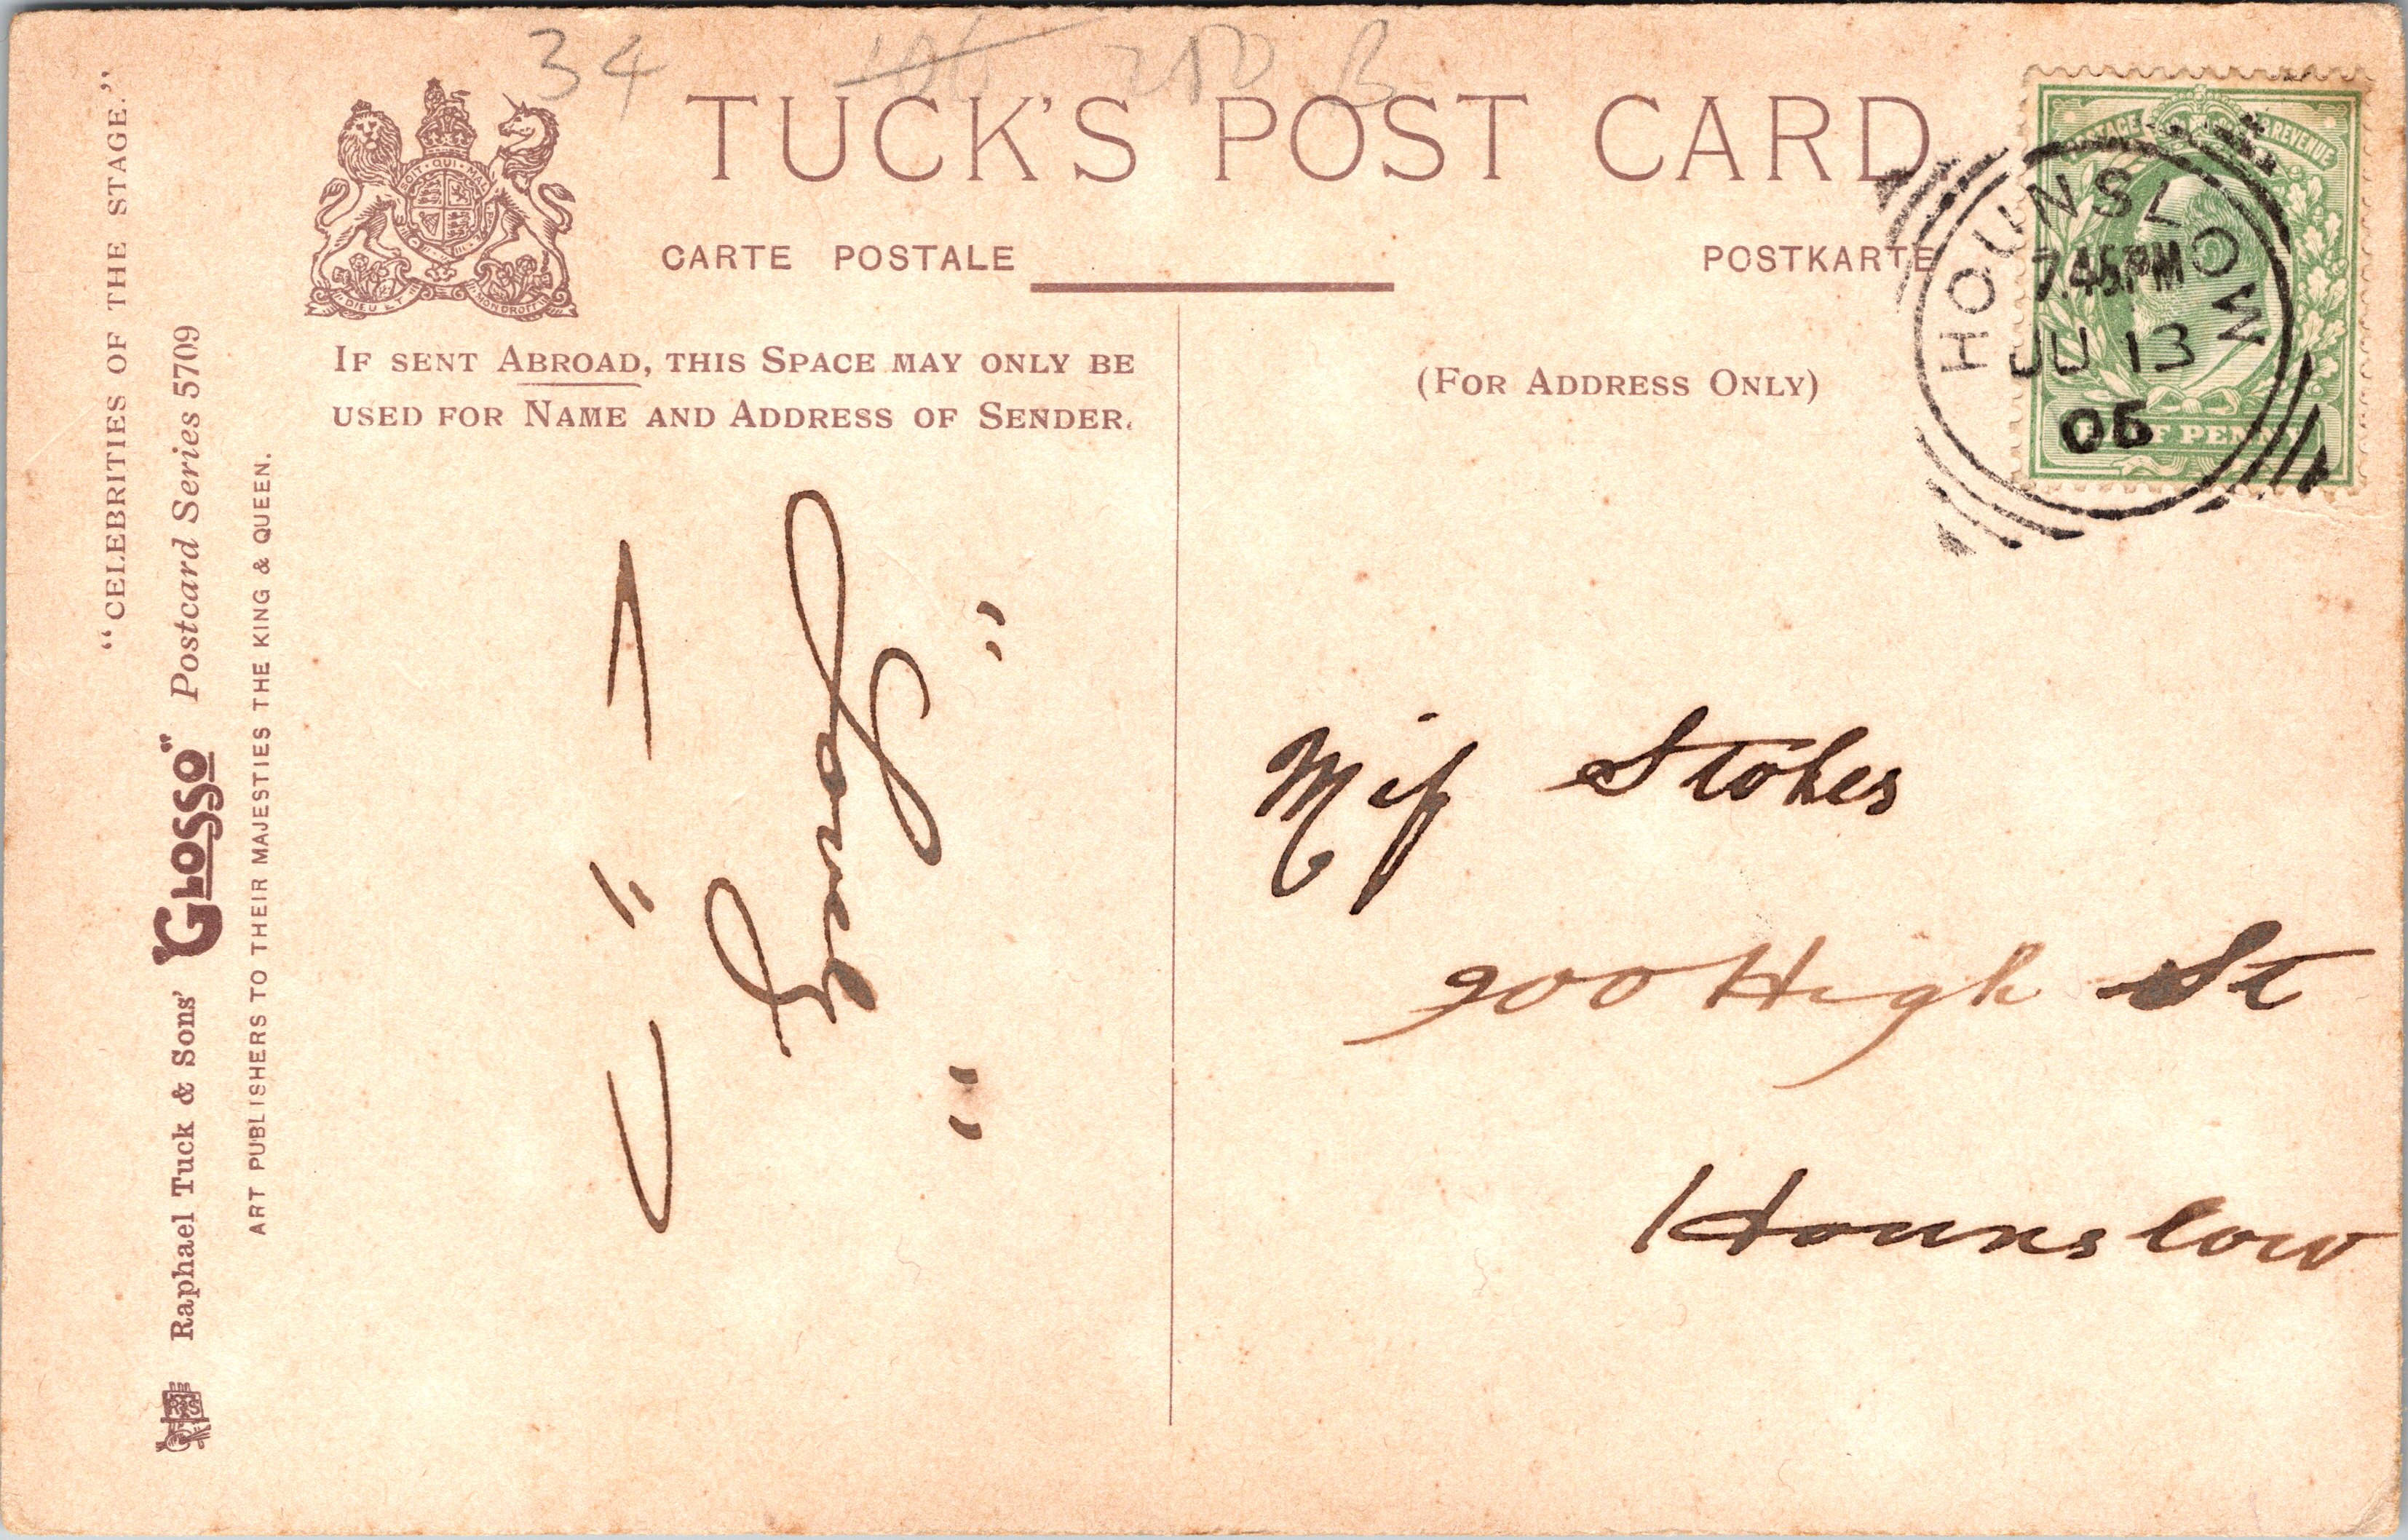 34 106 210 B
TUCK'S POST CARD
CARTE POSTALE
POSTKARTE
IF SENT ABROAD, THIS SPACE MAY ONLY BE
USED FOR NAME AND ADDRESS OF SENDER.
(FOR ADDRESS ONLY)
"CELEBRITIES OF THE STAGE."
Raphael Tuck & Sons' "GLOSSO" Postcard Series 5709
ART PUBLISHERS TO THEIR MAJESTIES THE KING & QUEEN.
DIEU ET MON DROIT
POSTAGE & REVENUE
HALF PENNY
HOUNSLOW
7.45PM
JU 13
06
Miss Stokes
200 High St
Hounslow